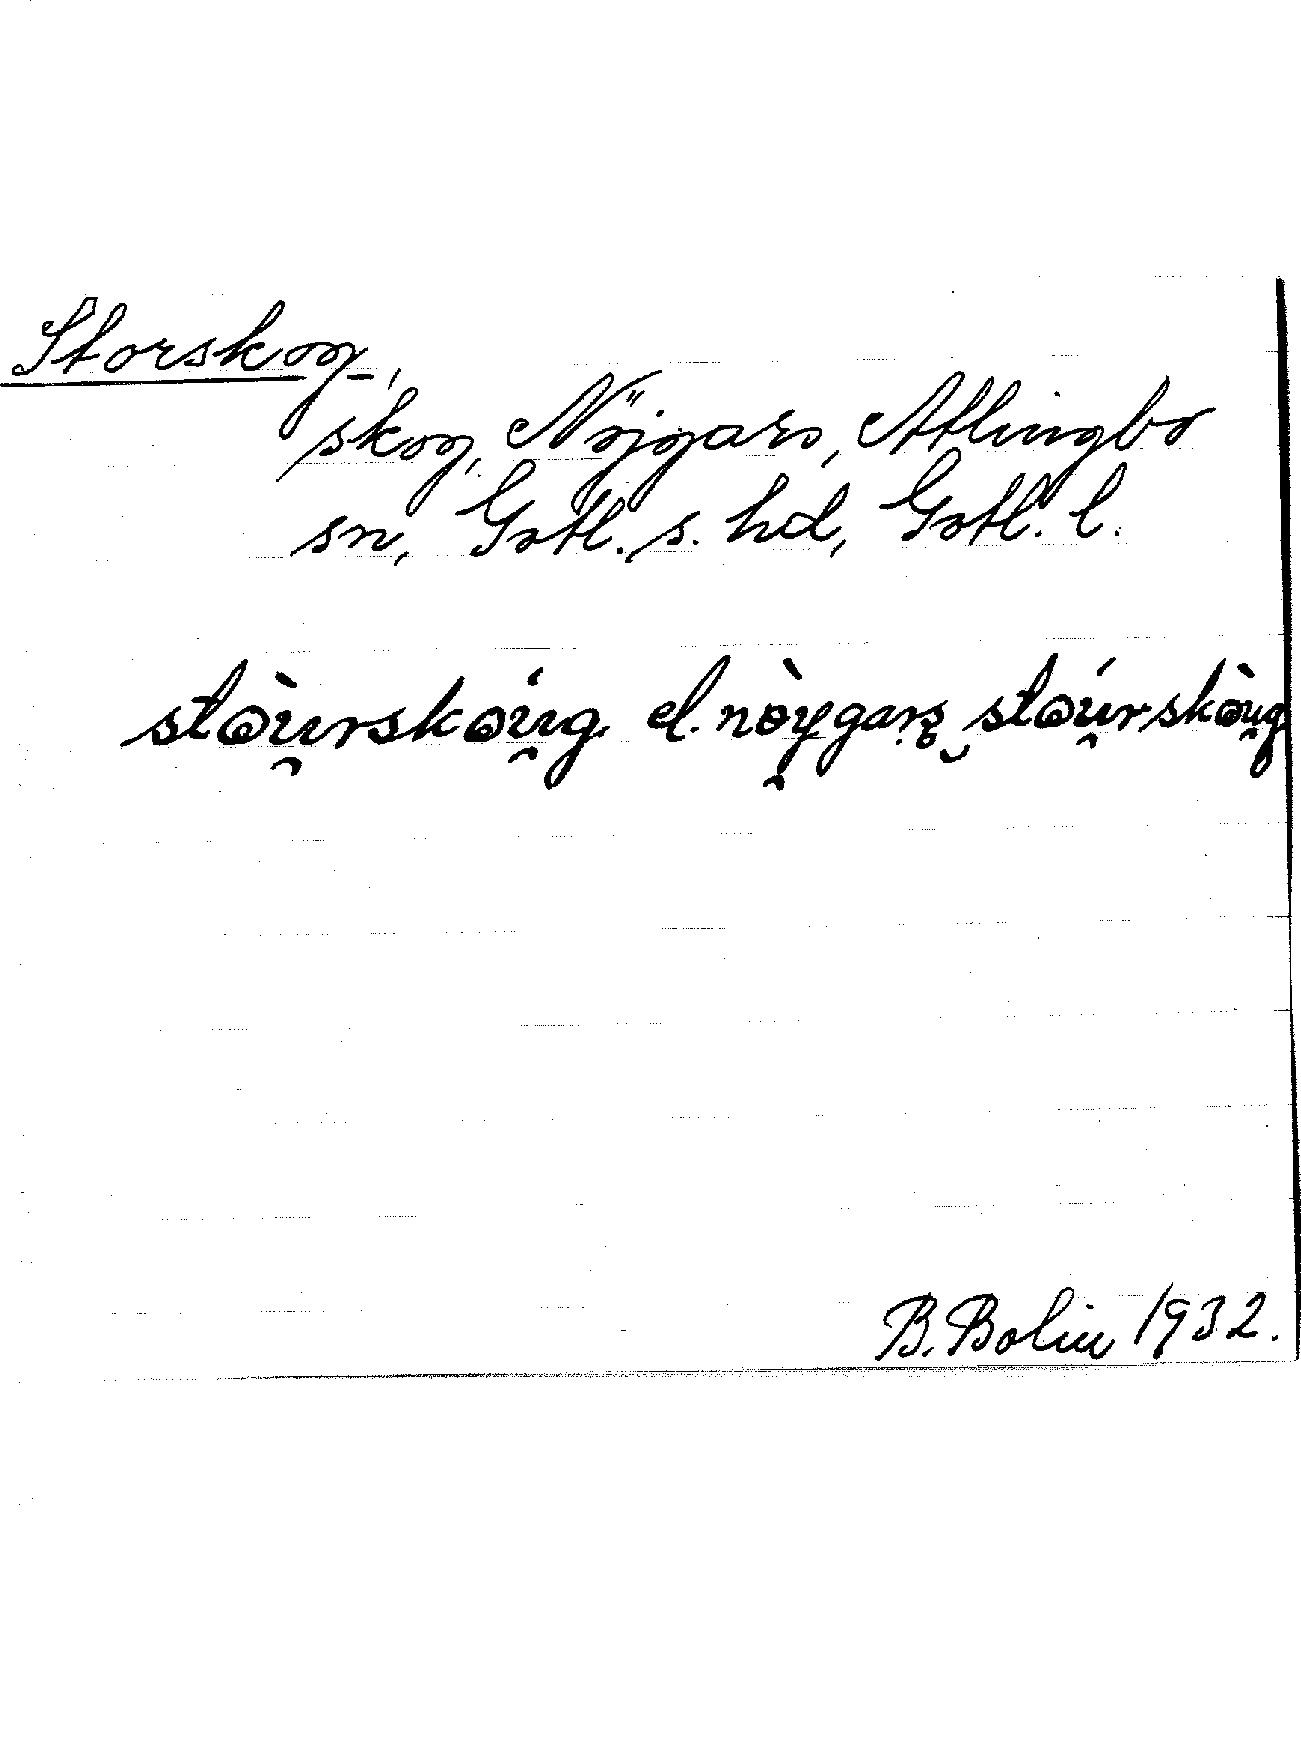 Storskog,
skog, Nöjgars, Atlingbo
sn, Gotl. s. hd, Gotl. l.
stòu̯rskóu̯g el. nòy̯gaṛş ‿stóu̯rskòu̯g
B. Bolin 1932.